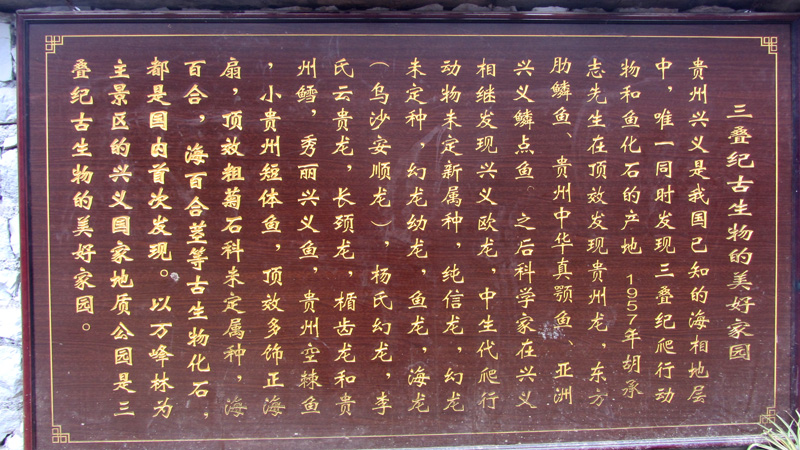 三叠纪古生物的美好家园
贵州兴义是我国已知的海相地层
中，唯一同时发现三叠纪爬行动
物和鱼化石的产地 1957年胡承
志先生在顶效发现贵州龙，东方
肋鳞鱼、贵州中华真颚鱼 亚洲
兴义鳞点鱼。之后科学家在兴义
相继发现兴义欧龙，中生代爬行
动物未定新属种，纯信龙，幻龙
未定种，幻龙幼龙，鱼龙，海龙
（乌沙安顺龙），杨氏幻龙，李
氏云贵龙，长颈龙，楯齿龙和贵
州鳕，秀丽兴义鱼，贵州空棘鱼
，小贵州短体鱼，顶效多饰正海
扇，顶效粗菊石科未定属种，海
百合，海百合茎等古生物化石，
都是国内首次发现。以万峰林为
主景区的兴义国家地质公园是三
叠纪古生物的美好家园。